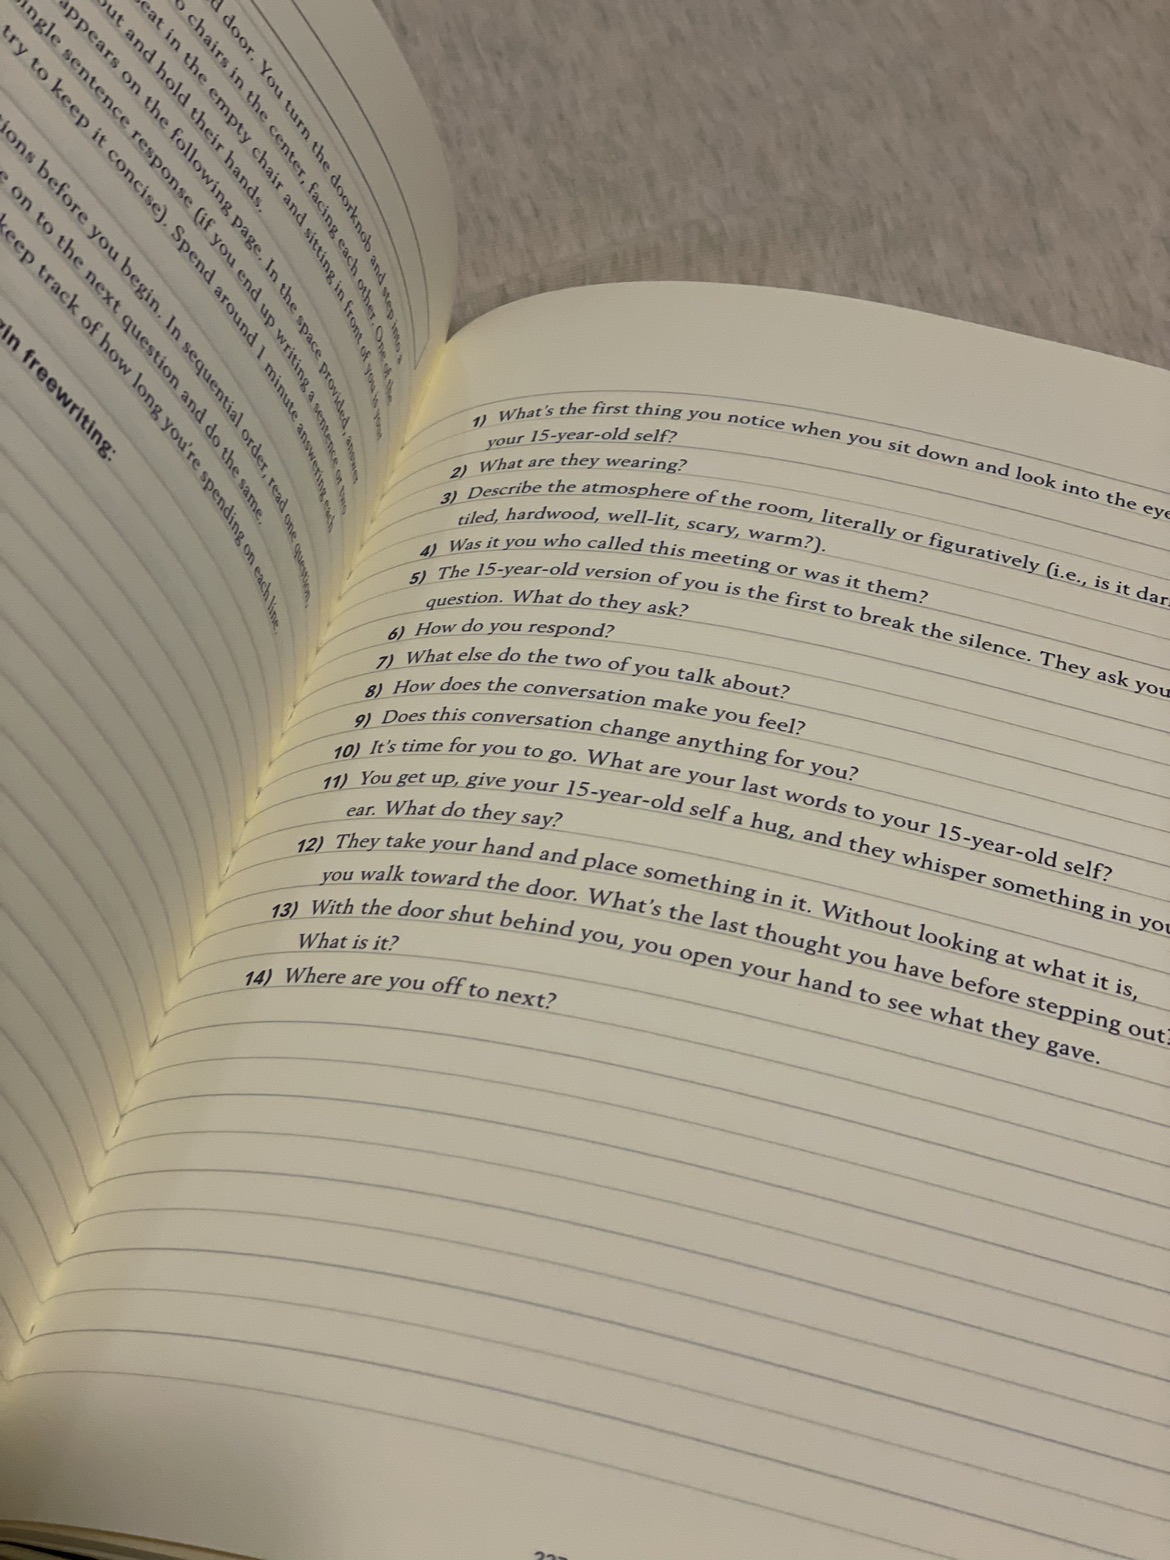 door. You turn the doorknob and step into a
chairs in the center, facing each other. One of the
seat in the empty chair and sitting in front of you is your
out and hold their hands.
appears on the following page. In the space provided, answer
single sentence response (if you end up writing a sentence or two
try to keep it concise). Spend around 1 minute answering each
before you begin. In sequential order, read one question,
on to the next question and do the same.
keep track of how long you're spending on each line.
freewriting:
1) What's the first thing you notice when you sit down and look into the eye
your 15-year-old self?
2) What are they wearing?
3) Describe the atmosphere of the room, literally or figuratively (i.e., is it dar
tiled, hardwood, well-lit, scary, warm?).
4) Was it you who called this meeting or was it them?
5) The 15-year-old version of you is the first to break the silence. They ask you
question. What do they ask?
6) How do you respond?
7) What else do the two of you talk about?
8) How does the conversation make you feel?
9) Does this conversation change anything for you?
10) It's time for you to go. What are your last words to your 15-year-old self?
11) You get up, give your 15-year-old self a hug, and they whisper something in you
ear. What do they say?
12) They take your hand and place something in it. Without looking at what it is,
you walk toward the door. What's the last thought you have before stepping out?
13) With the door shut behind you, you open your hand to see what they gave.
What is it?
14) Where are you off to next?